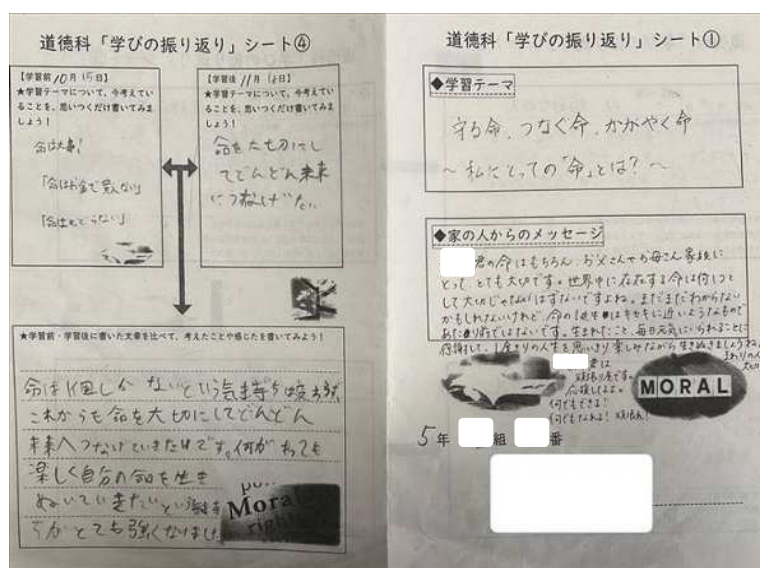 道徳科「学びの振り返り」シート④
【学習前 10月 15日】
★学習テーマについて、今考えてい
ることを、思いつくだけ書いてみま
しょう！
命は大事!
「命はお金で買えない」
「命はもどらない」
【学習後 11月 日】
★学習テーマについて、今考えてい
ることを、思いつくだけ書いてみま
しょう！
命を大切にし
てどんどん未来
につなげたい
★学習前・学習後に書いた文章を比べて、考えたことや感じたを書いてみよう！
命は1個しかないという気持ちは変わらず、
これからも命を大切にしてどんどん
未来へつなげていきたいです。何があっても
楽しく自分の命を生き
ぬいていきたいという気持
ちがとても強くなりました
Moral
right
道徳科「学びの振り返り」シート①
◆学習テーマ
守る命、つなぐ命、かがやく命
～私にとっての「命」とは？～
◆家の人からのメッセージ
君の命はもちろん、お父さんやお母さん家族に
とって、とても大切です。世界中に存在する命は何1つと
して大切じゃないはずないですよね。まだまだわからない
かもしれないけれど、命の誕生はキセキに近いようなもので
あたり前ではないです。生まれたこと、毎日元気にいられることに
感謝して、1度きりの人生を思いきり楽しみながら生きぬきましょうね。
君は
頑張り屋です。
応援してるよ。
何でもできる!
何でもなれる! 頑張れ!
MORAL
5年 組 番